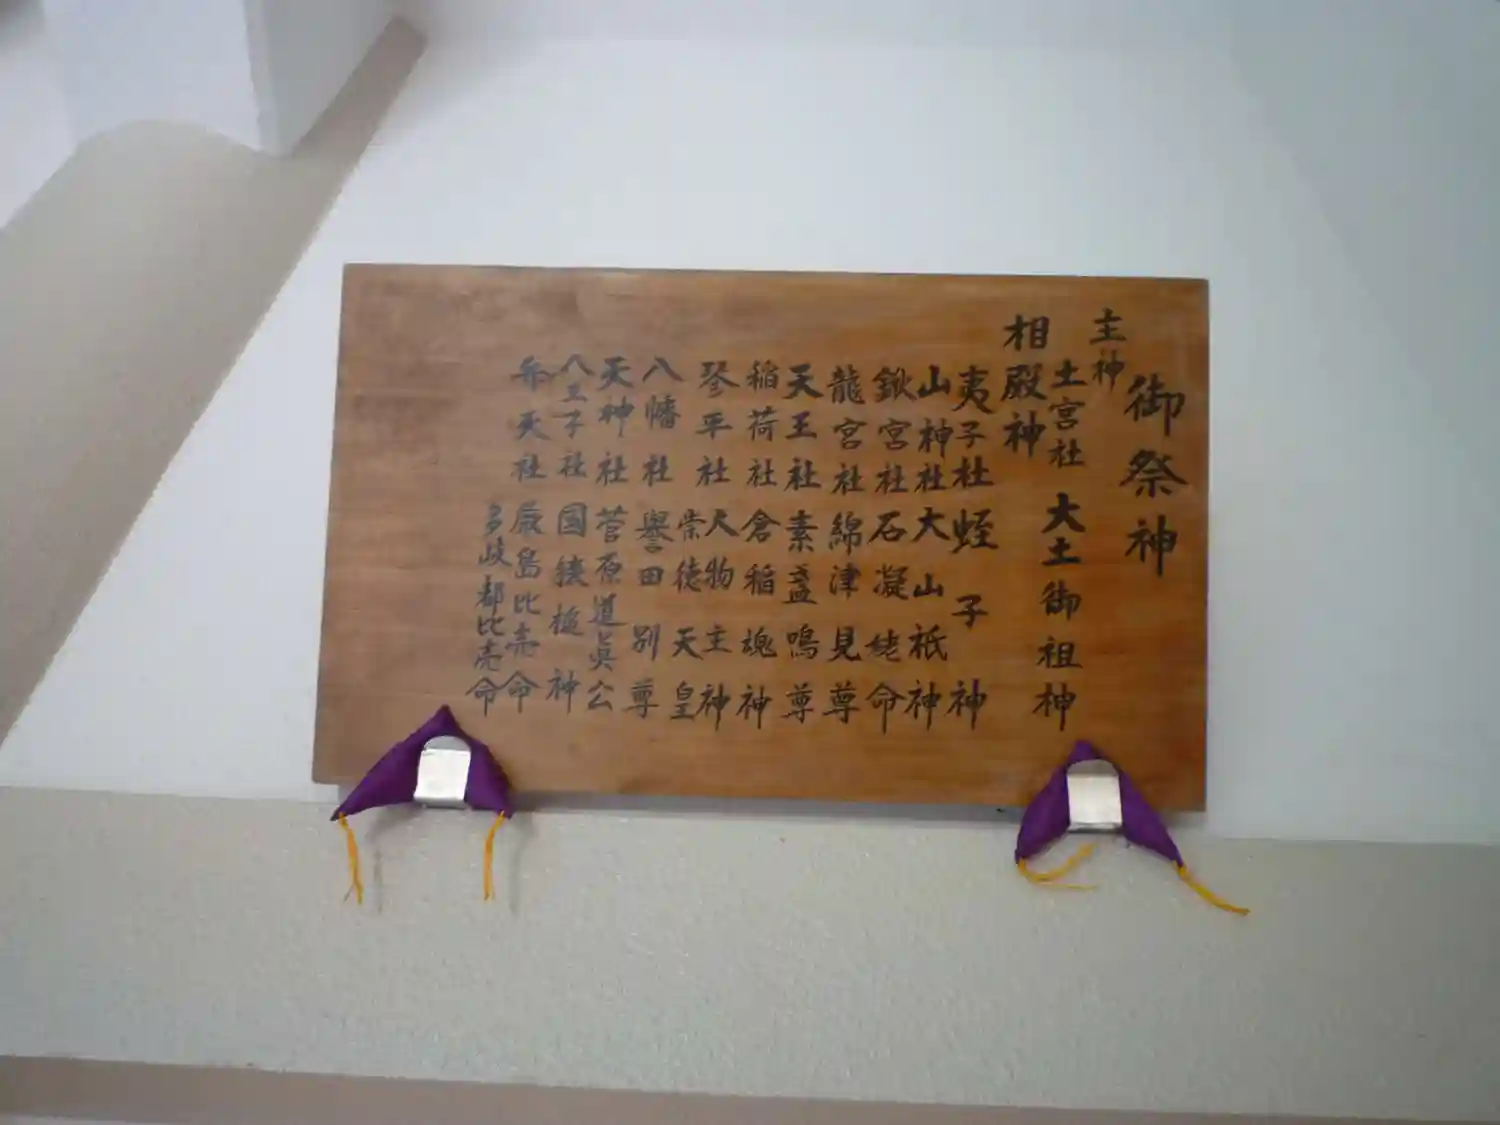 御祭神
主神
土宮社 大土御祖神
相殿神
夷子社 蛭子神
山神社 大山祇神
鍬宮社 石凝姥命
龍宮社 綿津見尊
天王社 素盞鳴尊
稲荷社 倉稲魂神
琴平社 大物主神
崇徳天皇
八幡社 譽田別尊
天神社 菅原道真公
八王子社 国狭槌神
弁天社 厳島比売命
多岐都比売命